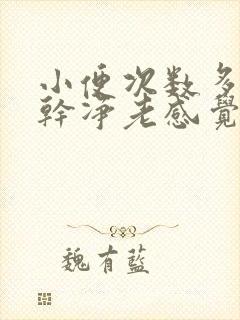 小便次数多
幹净老感覺
魏有藍